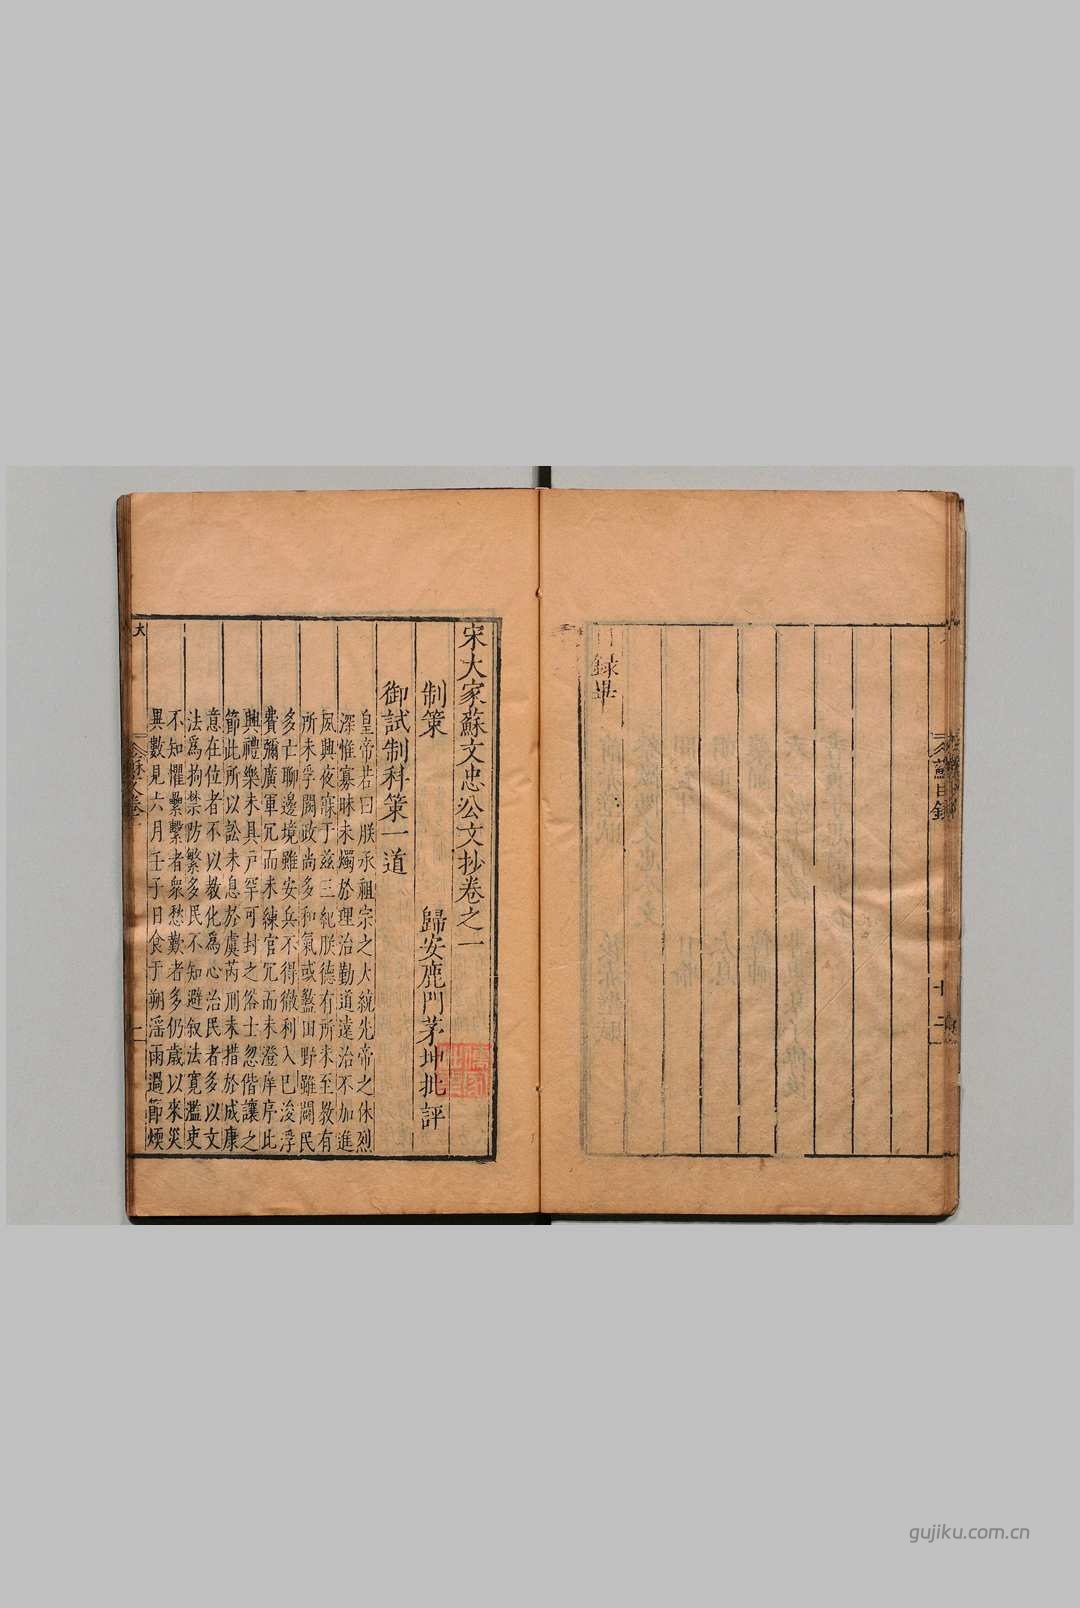 錄畢
蘇目錄
十二
宋大家蘇文忠公文抄卷之一
歸安鹿門茅坤批評
制策
御試制科策一道
皇帝若曰朕承祖宗之大統先帝之休烈
深惟寡昧未燭於理治勤道遠治不加進
夙興夜寐于茲三紀朕德有所未至教有
所未孚闕政尚多和氣或盭田野雖闢民
多亡聊邊境雖安兵不得徹利入已浚浮
費彌廣軍冗而未練官冗而未澄庠序比
興禮樂未具戶罕可封之俗士忽偕讓之
節此所以訟未息於虞芮刑未措於成康
意在位者不以教化為心治民者多以文
法爲拘禁防繁多民不知避叙法寛濫吏
不知懼纍繫者衆愁歎者多仍歲以來災
異數見六月壬子日食于朔淫雨過節煗
大
蘇文卷一
一
gujiku.com.cn